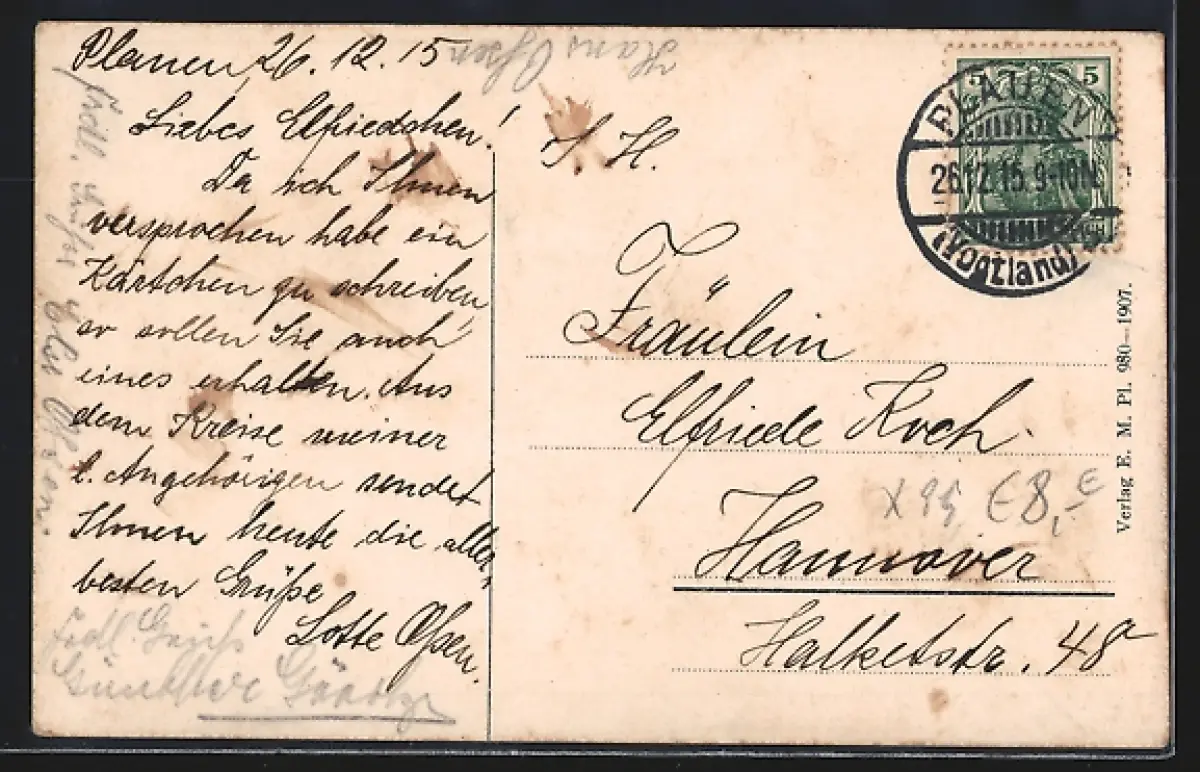 Plauen, 26. 12. 15
Hans Ohsen
Liebes Elfriedchen!
Da ich Ihnen
versprochen habe ein
Kärtchen zu schreiben,
so sollen Sie auch
eines erhalten. Aus
dem Kreise meiner
l. Angehörigen sendet
Ihnen heute die aller-
besten Grüße
Lotte Ohsen.
Frdl. Grüße Ohsen
Frdl. Gruß
S. H.
Fräulein
Elfriede Koch.
Hannover
Halketstr. 48a
x 95 € 8,-
5 5
PLAUEN
26.12.15.9-10N.
(Vogtland)
Verlag E. M. Pl. 980—1907.